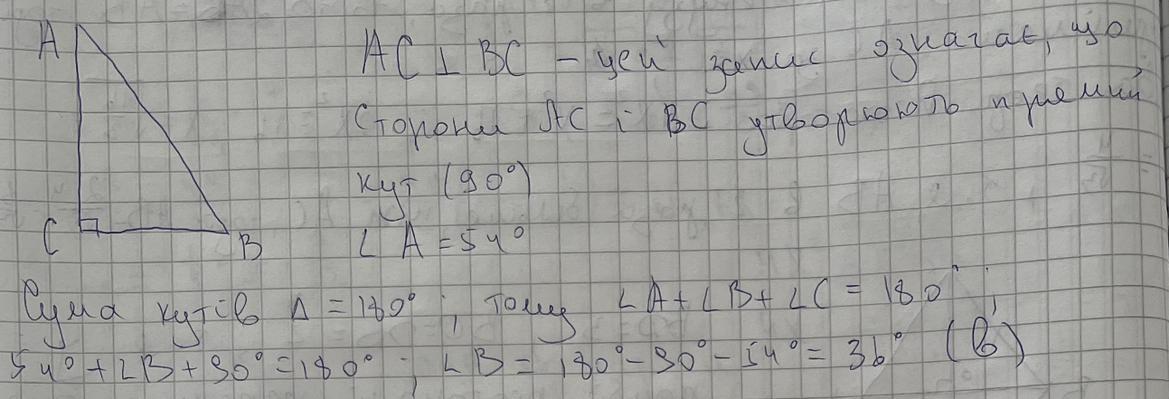 A
AC ⊥ BC – цей запис означає, що
сторони AC і BC утворюють прямий
кут (90°)
C B
∠ A = 54°
Сума кутів Δ = 180°; тому ∠A + ∠B + ∠C = 180°;
54° + ∠B + 90° = 180°; ∠B = 180° – 90° – 54° = 36° (в)